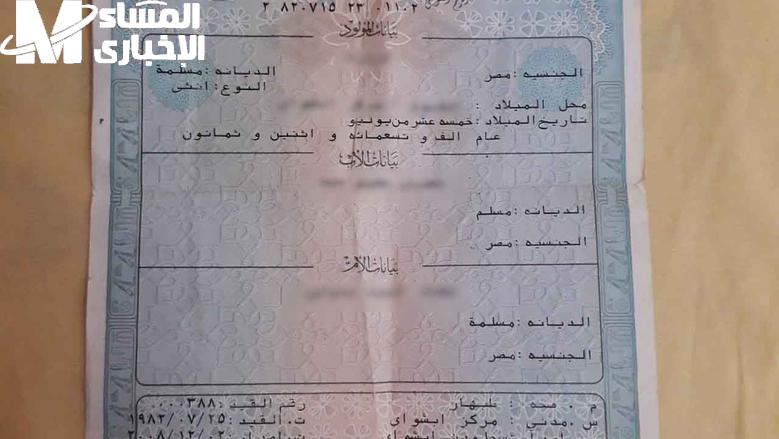 المساء
الإخبارى
٢ ٨٢٠٧١٥ ٢٣ ٠١١٠٢
بيانات المولود
الجنسيه : مصر
الديانه : مسلمة
النوع : انثى
محل الميلاد :
تاريخ الميلاد : خمسه عشر من يوليو
عام الف و تسعمائه و اثنين و ثمانون
بيانات الأب
الديانه : مسلم
الجنسيه : مصر
بيانات الأم
الديانه : مسلمة
الجنسيه : مصر
رقم القيد : ٠٠٠٠٣٨٨
م . صحه : طبهار
ت . القيد : ١٩٨٢/٠٧/٢٥
س . مدني : مركز ابشواي
٢٠٠٨/١٢/٠٢